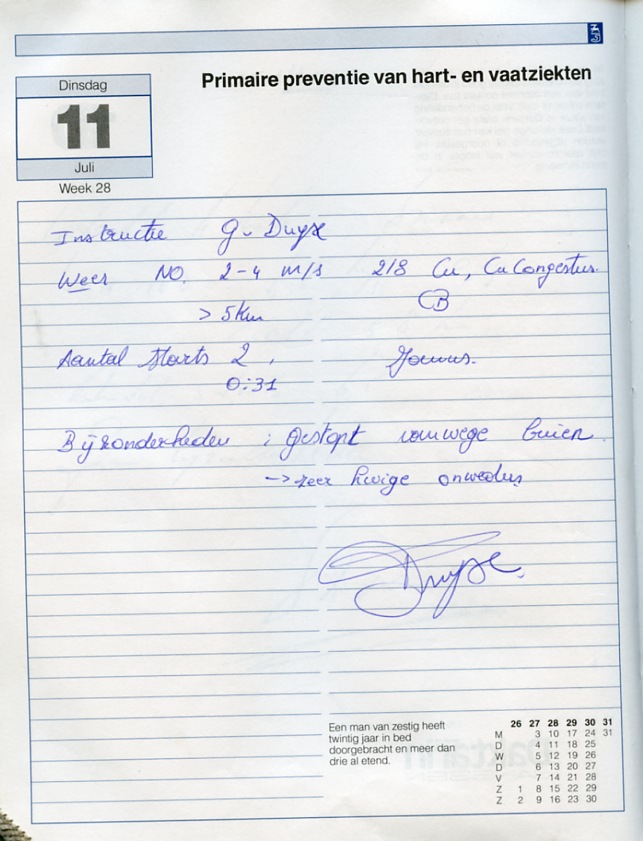 Primaire preventie van hart- en vaatziekten
Dinsdag
11
Juli
Week 28
Instructie G. Duyx
Weer NO. 2-4 m/s 2/8 Cu, Cu Congestus.
CB
> 5km
Aantal starts 2.
0:31
Bijzonderheden : gestopt vanwege buien
-> zeer hevige onweders
Duyx
Een man van zestig heeft
twintig jaar in bed
doorgebracht en meer dan
drie al etend.
26 27 28 29 30 31
M 3 10 17 24 31
D 4 11 18 25
W 5 12 19 26
D 6 13 20 27
V 7 14 21 28
Z 1 8 15 22 29
Z 2 9 16 23 30